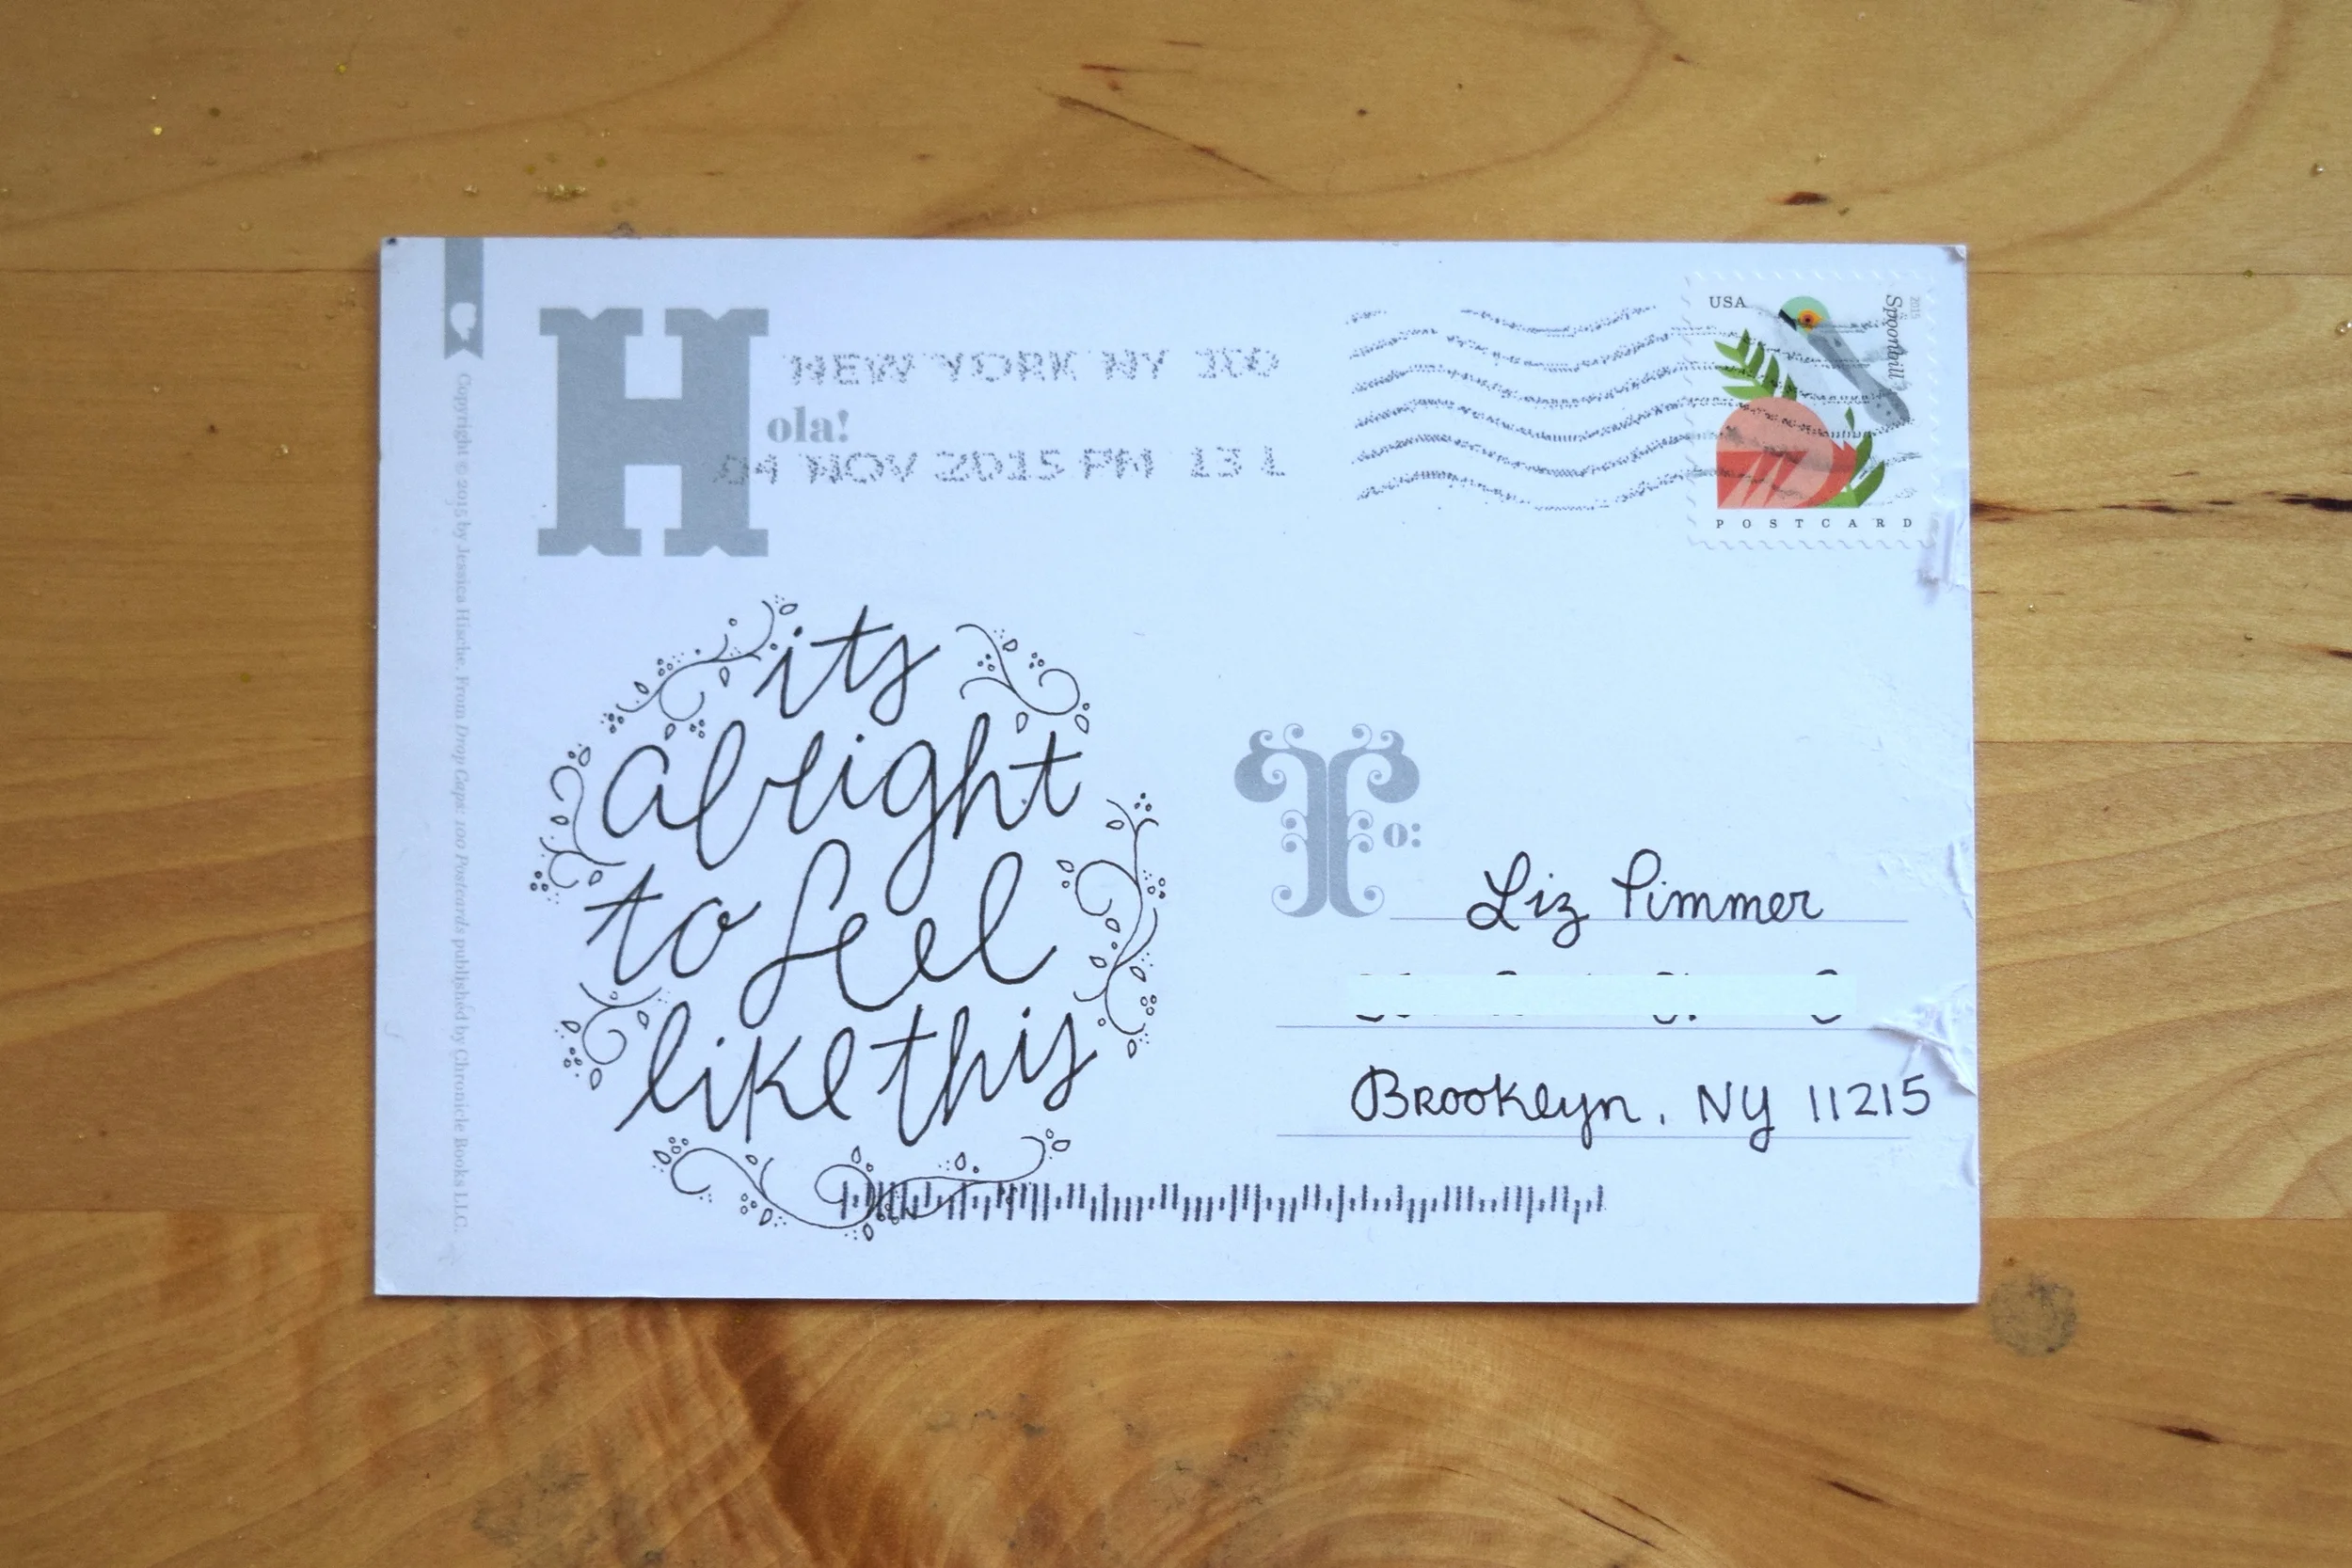 Hola!
NEW YORK NY 100
04 NOV 2015 PM 13 L
USA
Spoonbill
2015
POSTCARD
its
alright
to feel
like this
To:
Liz Pimmer
Brooklyn, NY 11215
Copyright © 2015 by Jessica Hische. From Drop Caps: 100 Postcards published by Chronicle Books LLC.